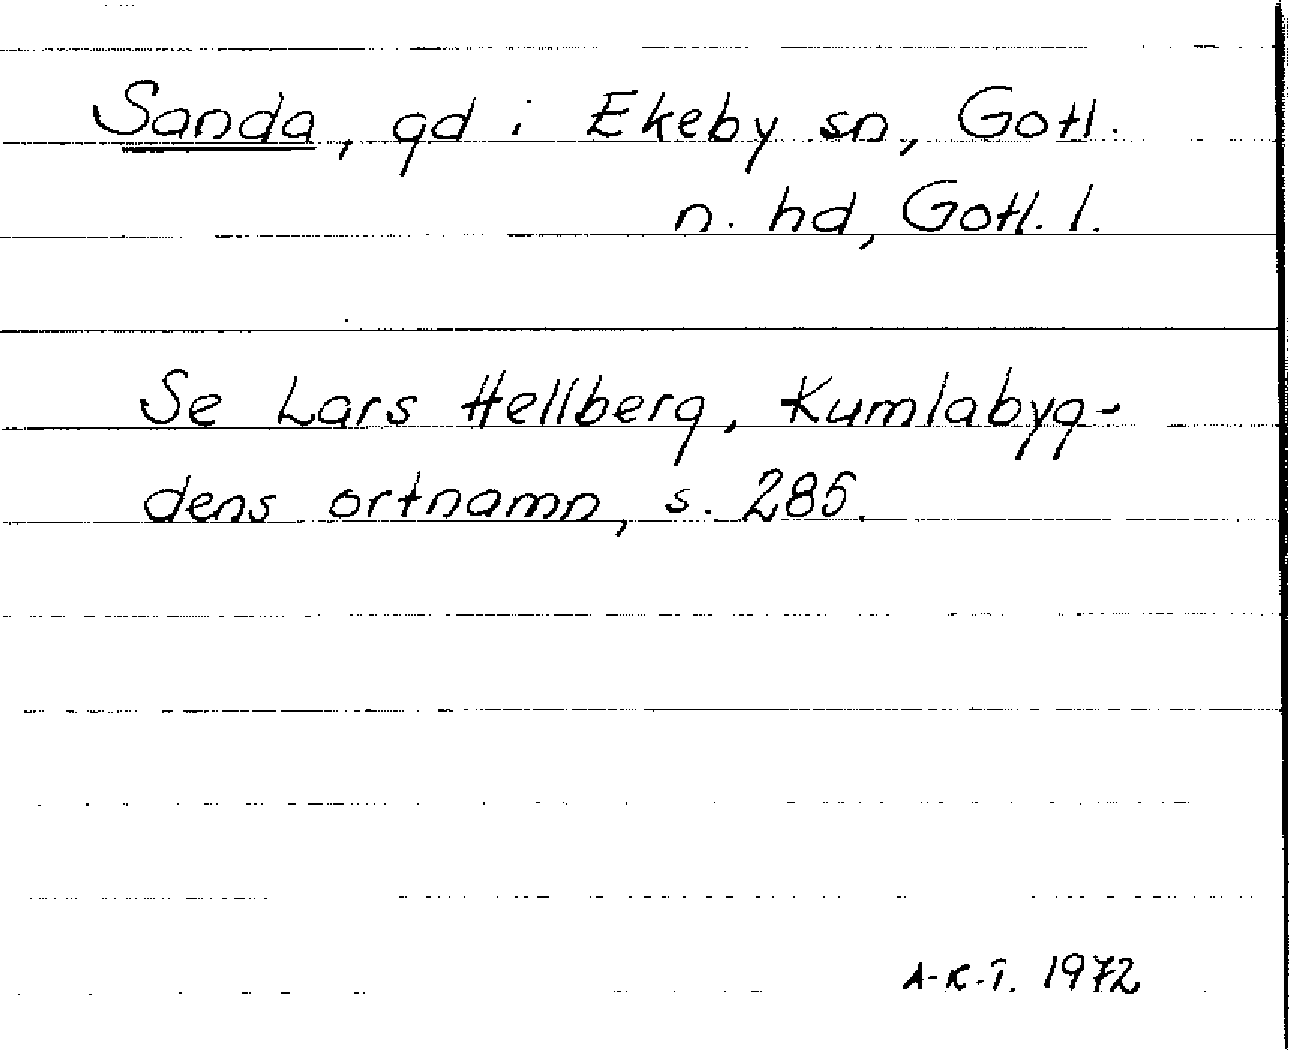 Sanda, gd i Ekeby sn, Gotl.
n. hd, Gotl. l.
Se Lars Hellberg, Kumlabyg-
dens ortnamn, s. 285.
A-K.T. 1972